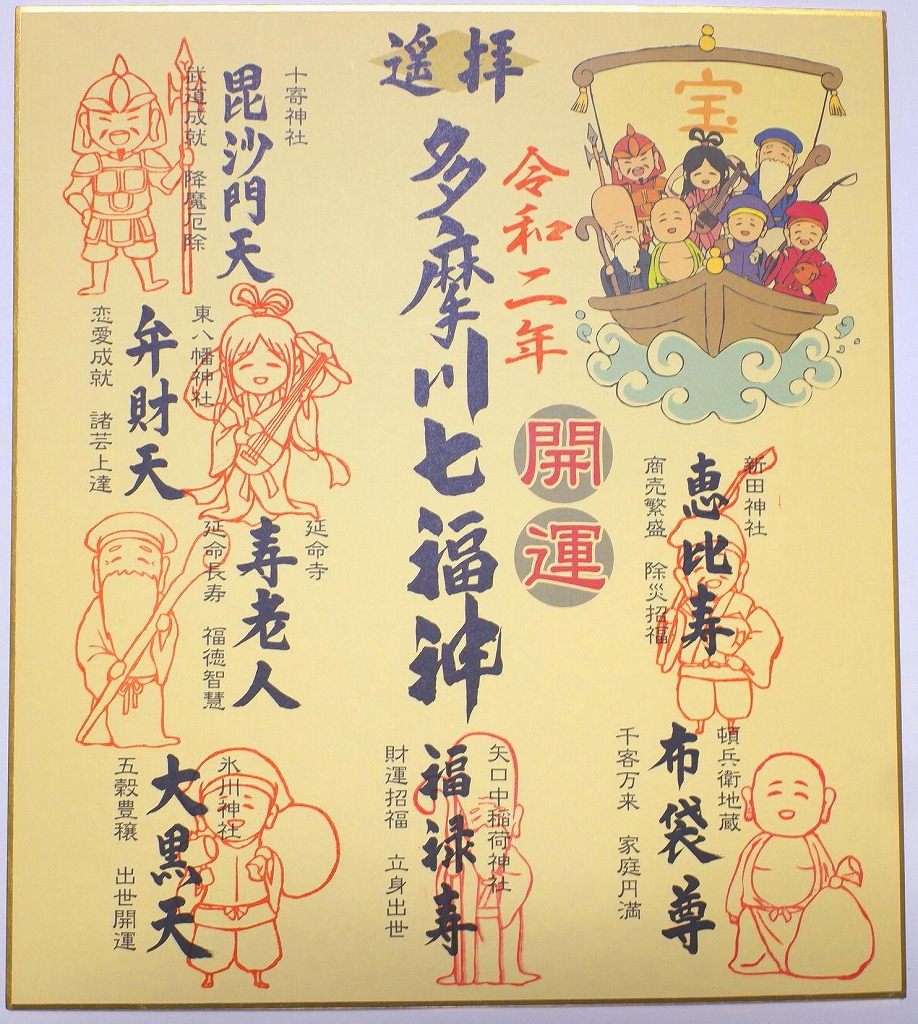 遥拝
多摩川七福神
令和二年
開運
宝
新田神社
恵比寿
商売繁盛 除災招福
頓兵衛地蔵
布袋尊
千客万来 家庭円満
矢口中稲荷神社
福禄寿
財運招福 立身出世
十寄神社
毘沙門天
武道成就 降魔厄除
東八幡神社
弁財天
恋愛成就 諸芸上達
延命寺
寿老人
延命長寿 福徳智慧
氷川神社
大黒天
五穀豊穣 出世開運